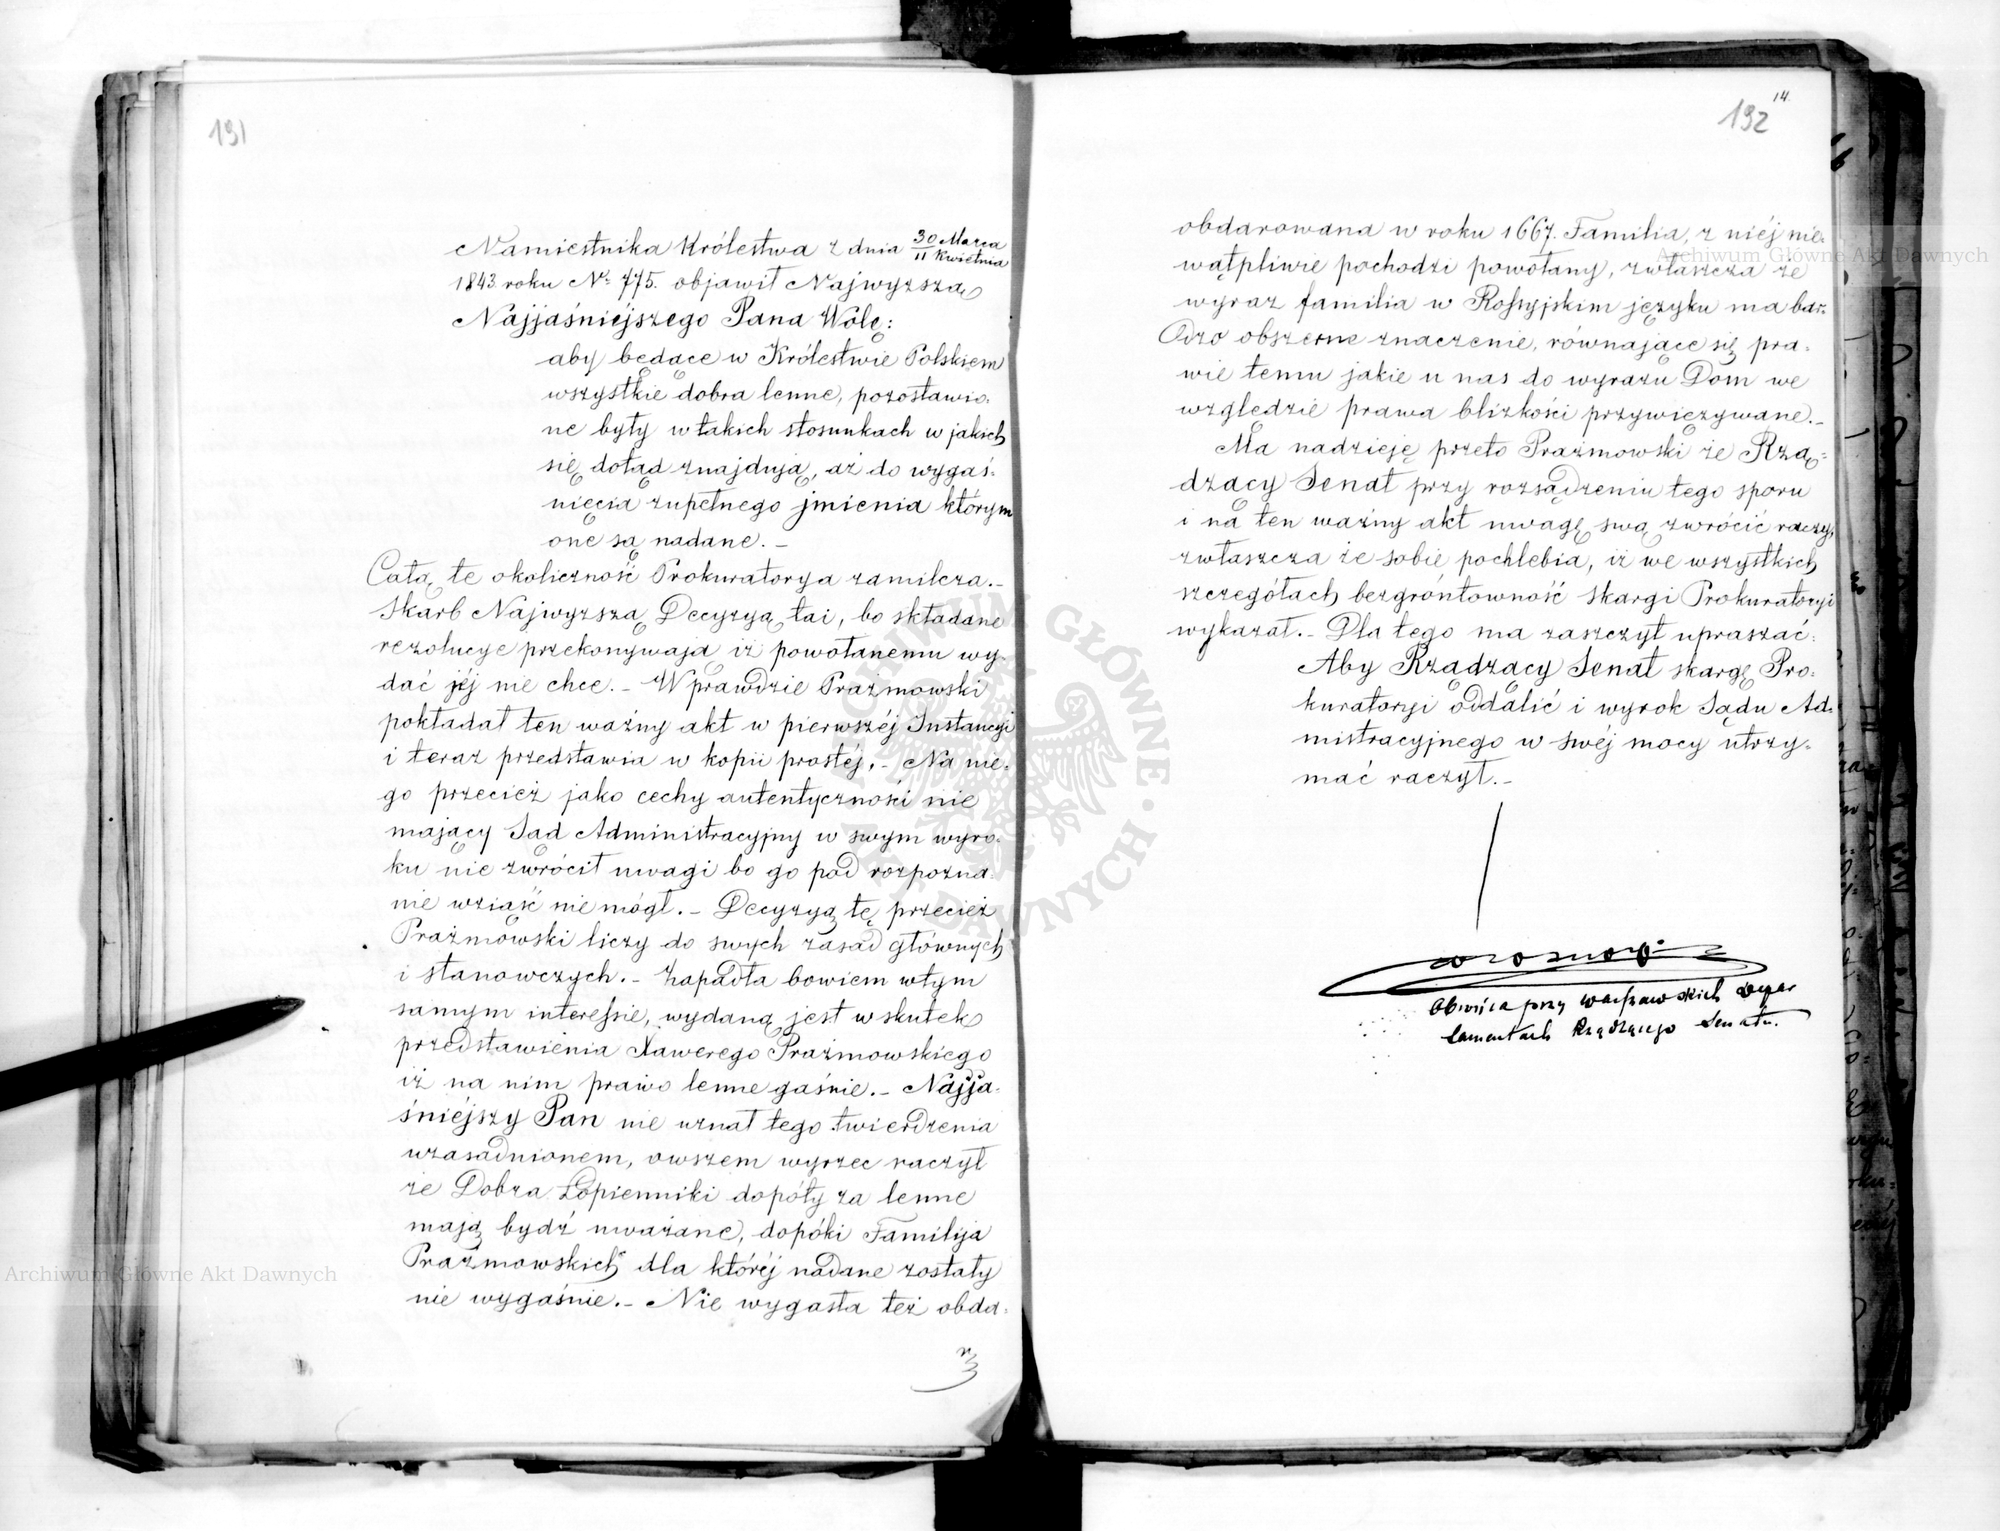 191
Namiestnika Królestwa z dnia 30 Marca / 11 Kwietnia
1843 roku Nr 775. objawił Najwyższą
Najjaśniejszego Pana Wolę:
aby będące w Królestwie Polskiem
wszystkie dobra lenne, pozostawio-
ne były w takich stosunkach w jakich
się dotąd znajdują, aż do wygaś-
nięcia zupełnego jmienia którym
one są nadane. _
Całą te okoliczność Prokuratorya zamilcza._
Skarb Najwyższą Decyzyą tai, bo składane
rezolucye przekonywają iż powołanemu wy-
dać jéj nie chce._ Wprawdzie Prażmowski
pokładał ten ważny akt w pierwszéj Instancyi
i teraz przedstawia w kopii prostéj._ Na nie-
go przecież jako cechy autentyczności nie
mający Sąd Administracyjny w swym wyro-
ku nie zwrócił uwagi bo go pod rozpozna-
nie wziąść nie mógł._ Decyzyą tę przecież
Prażmowski liczy do swych zasad głównych
i stanowczych._ Zapadła bowiem w tym
samym interessie, wydaną jest w skutek
przedstawienia Xawerego Prażmowskiego
iż na nim prawo lenne gaśnie._ Najja-
śniejszy Pan nie uznał tego twierdzenia
uzasadnionem, owszem wyrzec raczył
że Dobra Łopienniki dopóty za lenne
mają bydź uważane, dopóki Familija
Prażmowskich dla któréj nadane zostały
nie wygaśnie._ Nie wygasła też obda-
192
14
obdarowana w roku 1667. Familia, z niéj nie-
wątpliwie pochodzi powołany, zwłaszcza że
wyraz familia w Rossyjskim języku ma bar-
dzo obszerne znaczenie, równające się pra-
wie temu jakie u nas do wyrazu Dom we
względzie prawa blizkości przywięzywane._
Ma nadzieję przeto Prażmowski że Rzą-
dzący Senat przy rozsądzeniu tego sporu
i na ten ważny akt uwagę swą zwrócić raczy,
zwłaszcza że sobie pochlebia, iż we wszystkich
szczegółach bezgróntowność skargi Prokuratoryi
wykazał._ Dla tego ma zaszczyt upraszać:
Aby Rządzący Senat skargę Pro-
kuratoryi oddalić i wyrok Sądu Ad-
mistracyjnego w swéj mocy utrzy-
mać raczył._
Obrońca przy Warszawskich Depar
tamentach Rządzącego Senatu.
Archiwum Główne Akt Dawnych
Archiwum Główne Akt Dawnych
ARCHIWUM GŁÓWNE AKT DAWNYCH